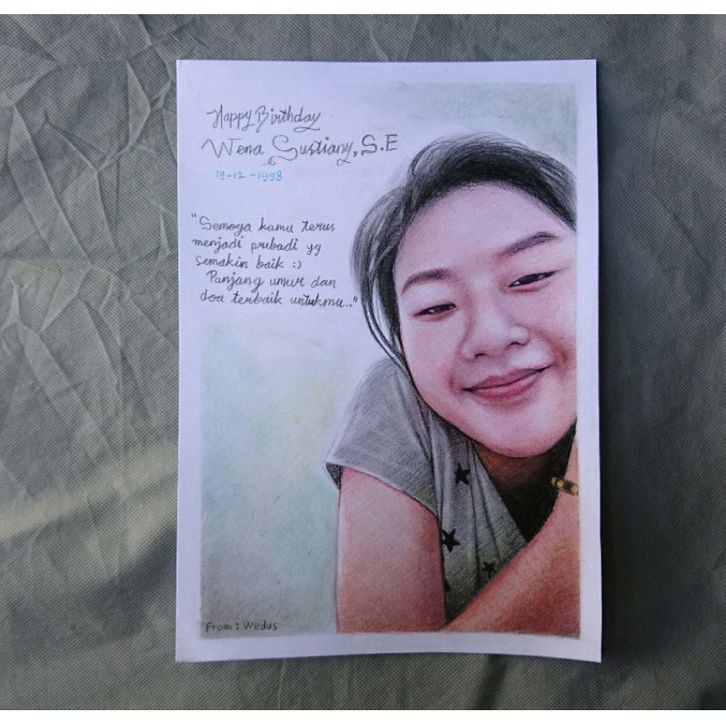 Happy Birthday
Wena Gustiany, S.E
19-12-1998
"Semoga kamu terus
menjadi pribadi yg
semakin baik :)
Panjang umur dan
doa terbaik untukmu.."
From : Wedus